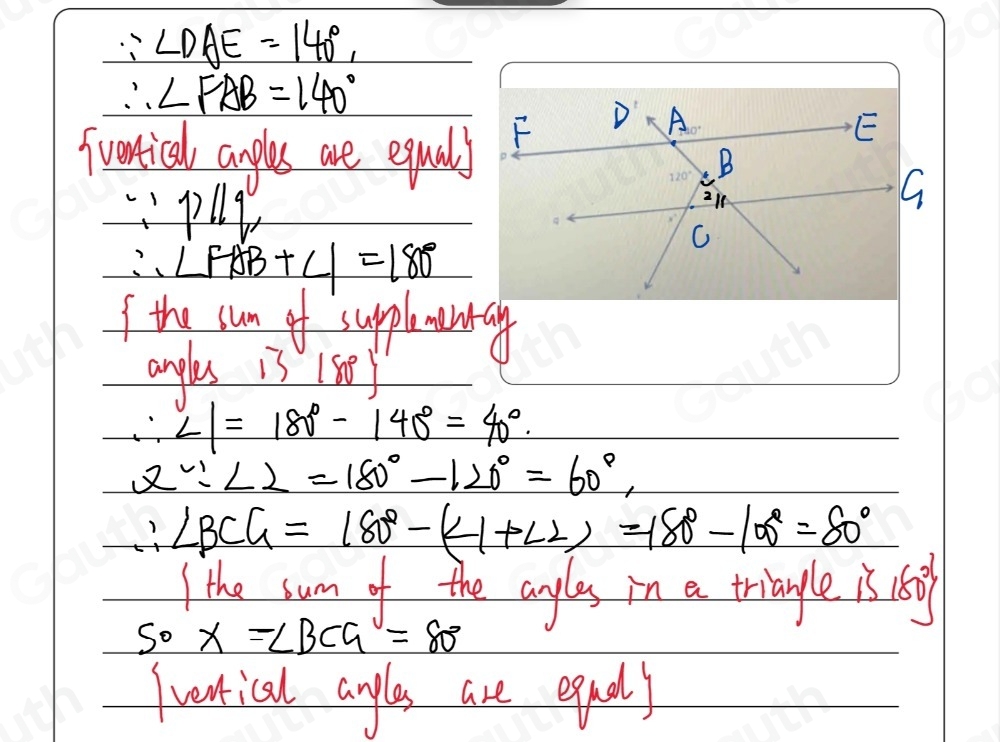 ∵ ∠DAE = 140°,
∴ ∠FAB = 140°
{vertical angles are equal}
∵ p∥q,
∴ ∠FAB + ∠1 = 180°
{the sum of supplementary
angles is 180°}
∴ ∠1 = 180° - 140° = 40°.
又∵ ∠2 = 180° - 120° = 60°,
∴ ∠BCG = 180° - (∠1+∠2) = 180° - 100° = 80°
{the sum of the angles in a triangle is 180°}
So x = ∠BCG = 80°
{vertical angles are equal}
F D A 140° E
p
120° B
2 1 G
q x° C
Gauth